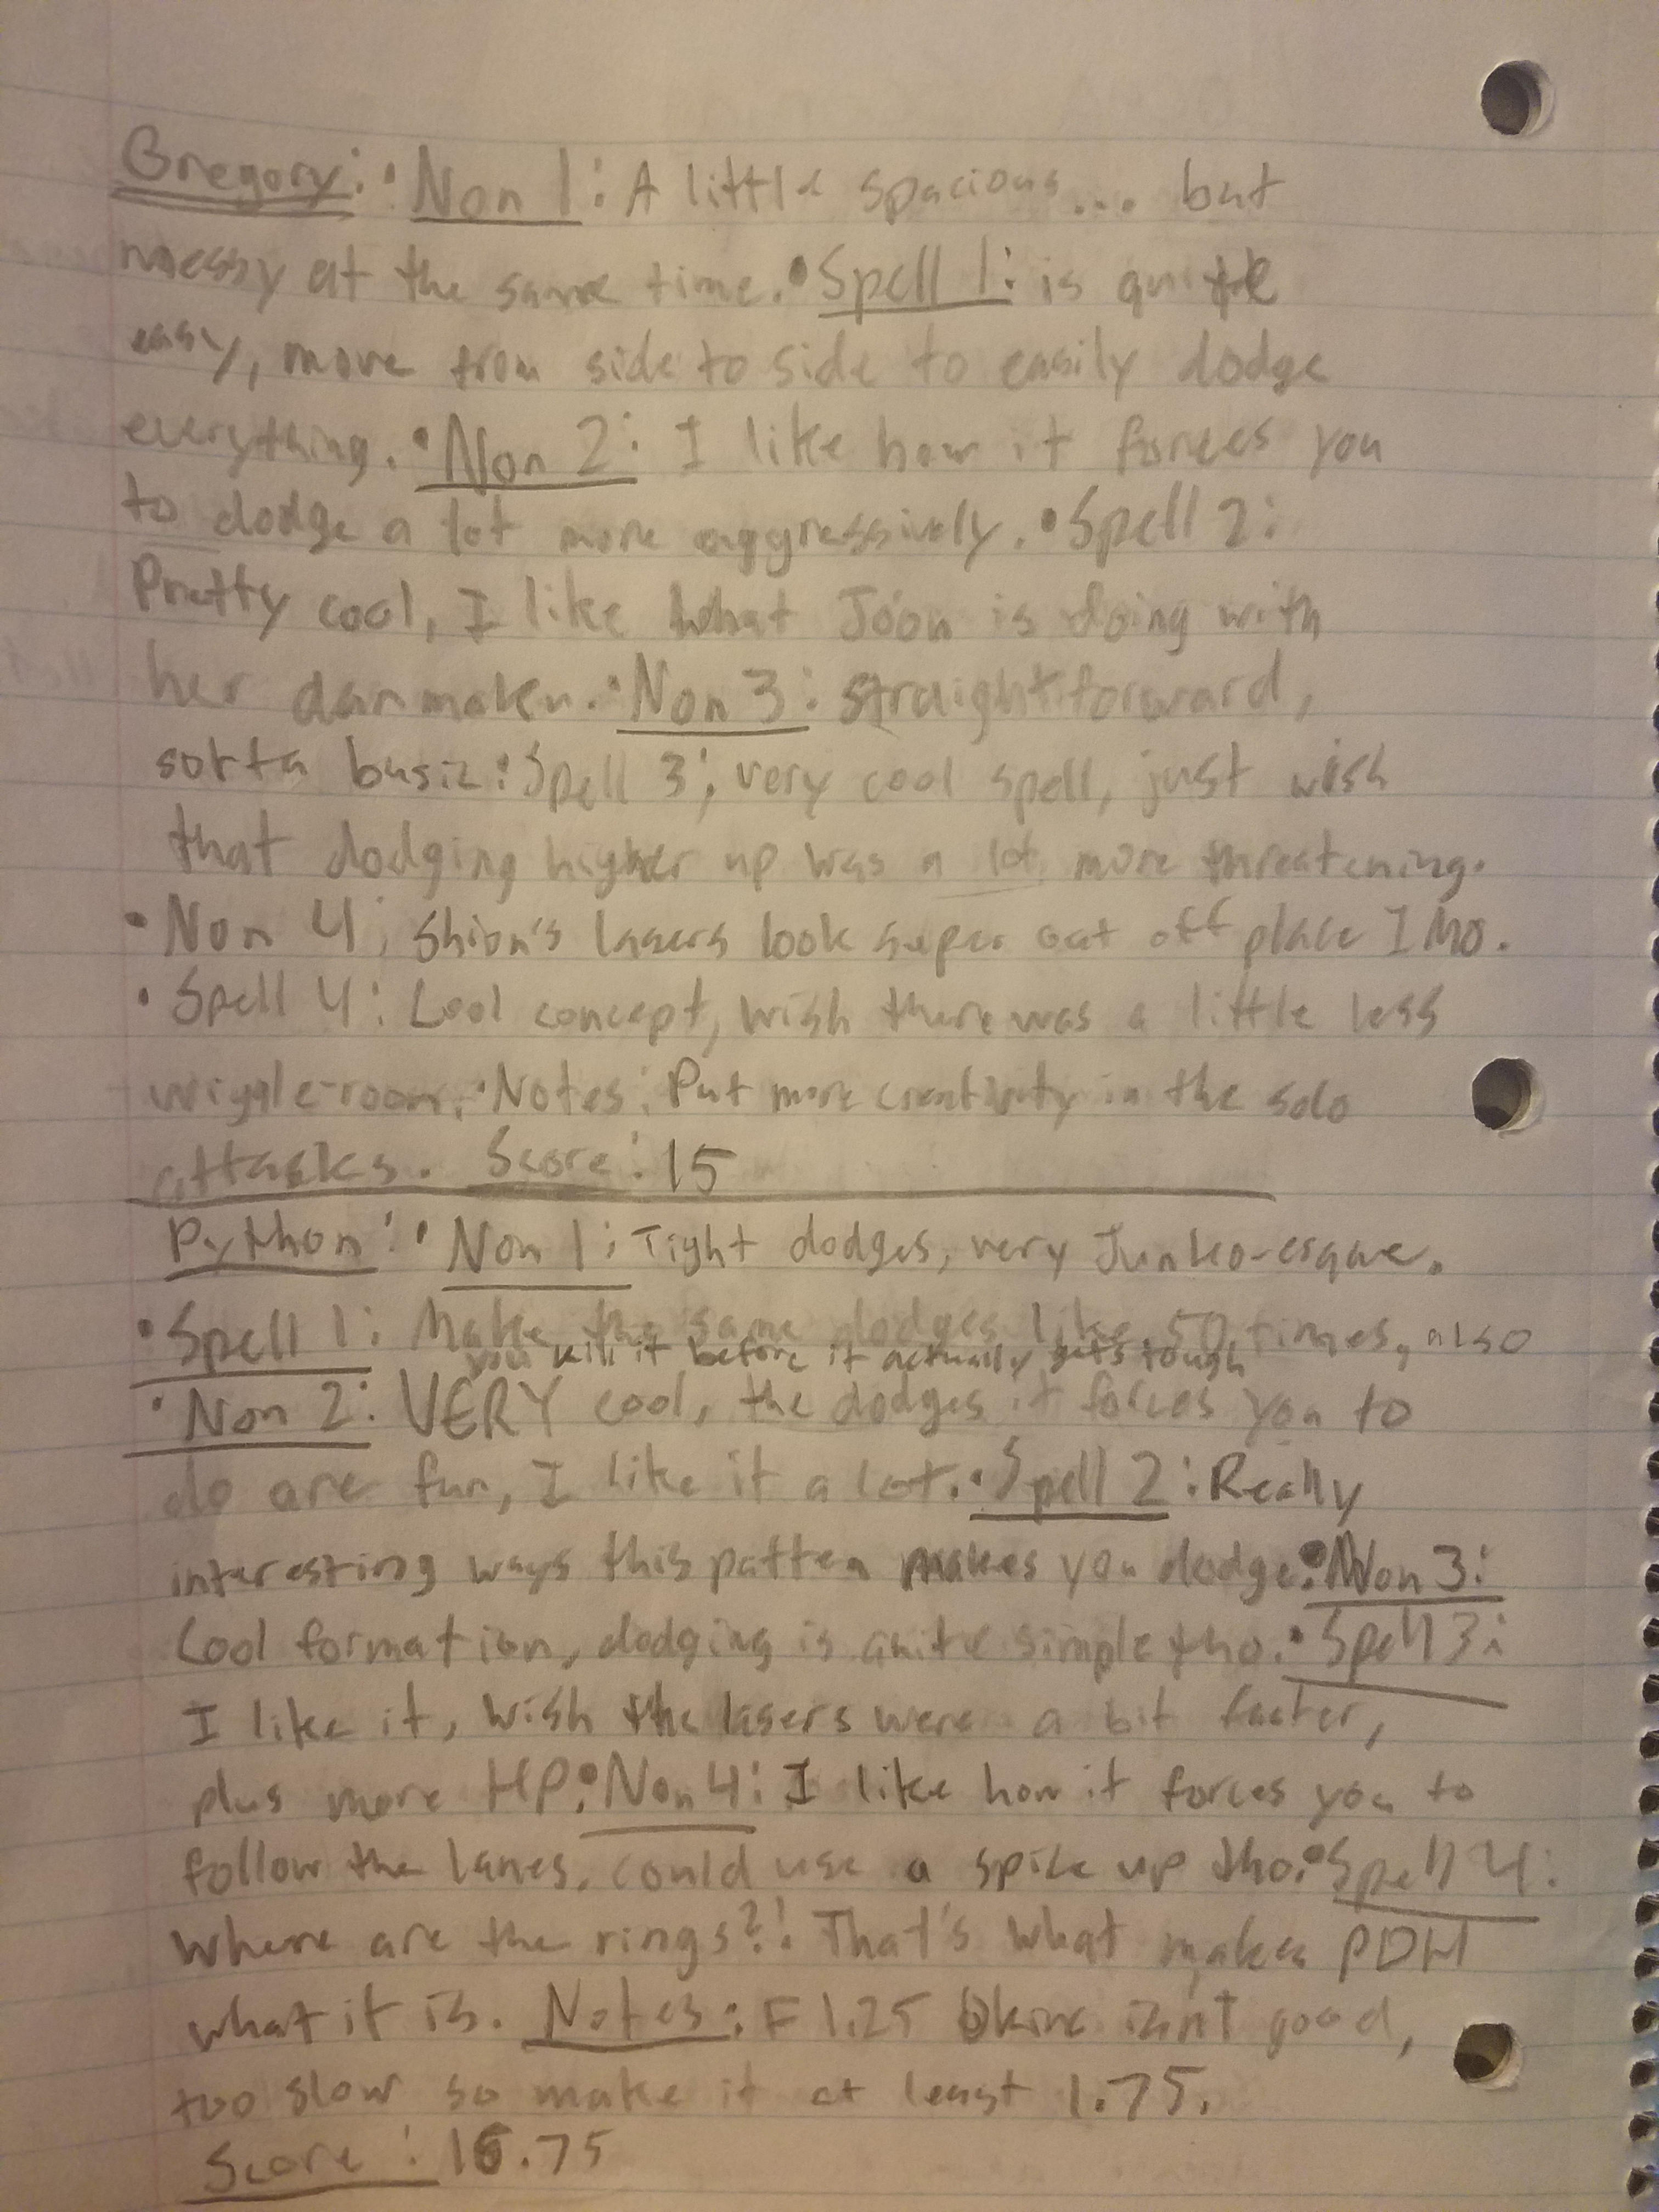 Gregory: • Non 1: A little spacious... but
messy at the same time. • Spell 1: is quite
easy, move from side to side to easily dodge
everything. • Non 2: I like how it forces you
to dodge a lot more aggressively. • Spell 2:
Pretty cool, I like what Jo'on is doing with
her danmaku. • Non 3: straightforward,
sorta basic. • Spell 3: very cool spell, just wish
that dodging higher up was a lot more threatening.
• Non 4: Shion's lasers look super out off place IMO.
• Spell 4: Cool concept, wish there was a little less
wiggle-room. • Notes: Put more creativity in the solo
attasks. Score: 15
Python: • Non 1: Tight dodges, very Junko-esque.
• Spell 1: Make the same dodges like 50 times, also
you kill it before it actually gets tough
• Non 2: VERY cool, the dodges it forces you to
do are fun, I like it a lot. • Spell 2: Really
interesting ways this patten makes you dodge. • Non 3:
Cool formation, dodging is quite simple tho. • Spell 3:
I like it, wish the lasers were a bit faster,
plus more HP. • Non 4: I like how it forces you to
follow the lanes, could use a spice up tho. • Spell 4:
Where are the rings?! That's what makes PDH
what it is. Notes: F 1.25 isn't good,
too slow so make it at least 1.75.
Score: 16.75